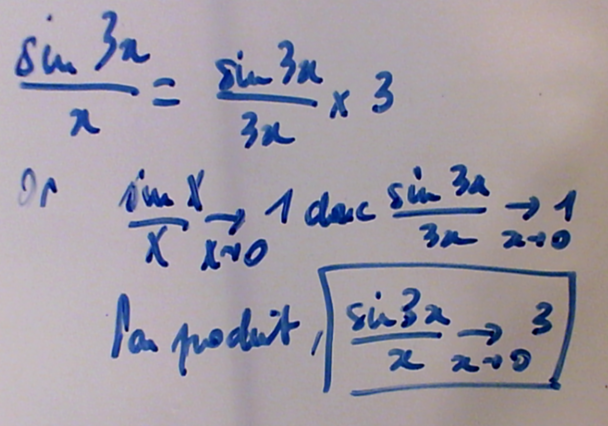 sin 3x / x = sin 3x / 3x × 3
Or sin X / X → 1 X→0 donc sin 3x / 3x → 1 x→0
Par produit, sin 3x / x → 3 x→0